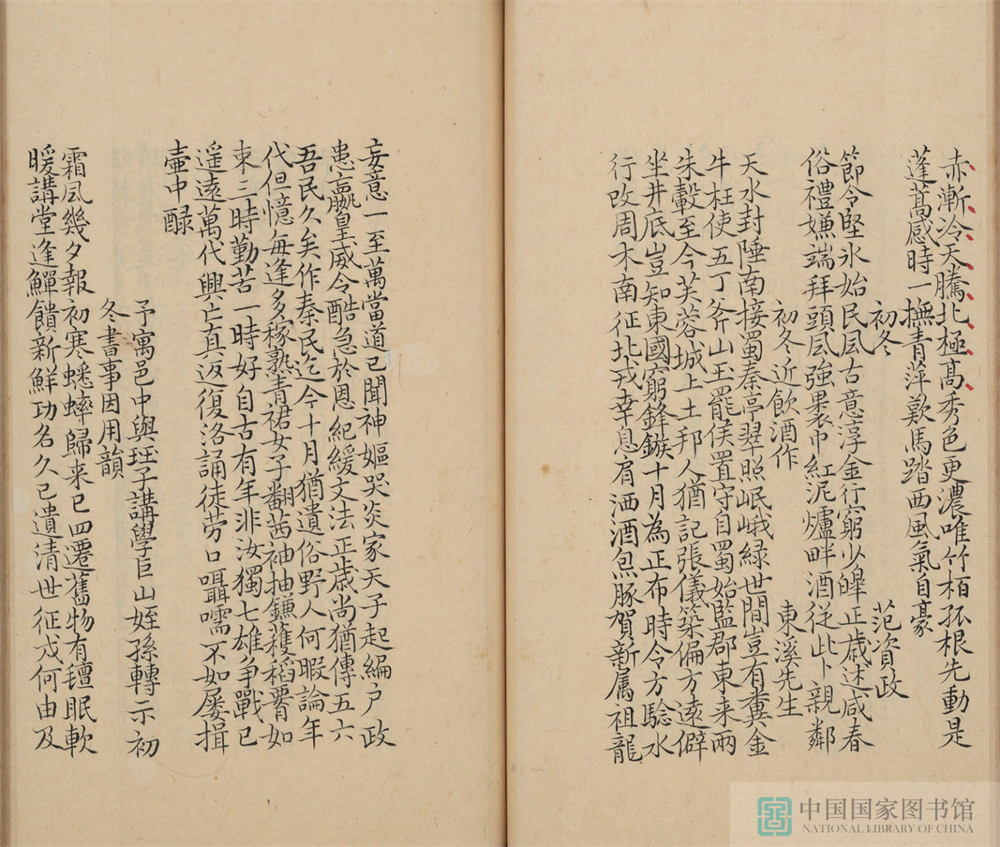 赤漸冷天騰北極高秀色更濃唯竹栢孤根先動是
蓬蒿感時一撫青萍歎馬踏西風氣自豪
初冬 范資政
節令堅氷始民風古意淳金行窮少皥正歳述咸春
俗禮嫌端拜頭風強裹巾紅泥爐畔酒從此卜親鄰
初冬近飲酒作 東溪先生
天水封陲南接蜀秦亭翠照岷峨緑世間豈有糞金
牛枉使五丁斧山玉罷侯置守自蜀始監郡東来兩
朱轂至今芙蓉城上土邦人猶記張儀築偏方遠僻
坐井底豈知東國窮鋒鏃十月為正布時令方驗水
行改周木南征北戎幸息肩洒酒炰豚賀新属祖龍
妄意一至萬當道已聞神嫗哭炎家天子起編户政
患嬴皇威令酷急於恩紀緩文法正歳尚猶傳五六
吾民久矣作秦民迄今十月猶遺俗野人何暇論年
代但憶毎逢多稼熟青裙女子翻茜袖抽鎌穫稻罾如
東三時勤苦一時好自古有年非汝獨七雄争戰已
遥遠萬代興亡真返復洛誦徒劳口囁嚅不如屡揖
壷中醁
予寓邑中與珏子講學巨山姪孫轉示初
冬書事因用韻
霜風幾夕報初寒蟋蟀歸来已四遷舊物有氊眠軟
暖講堂逢鱓饋新鮮功名久已遺清世征戍何由及
中国国家图书馆
NATIONAL LIBRARY OF CHINA